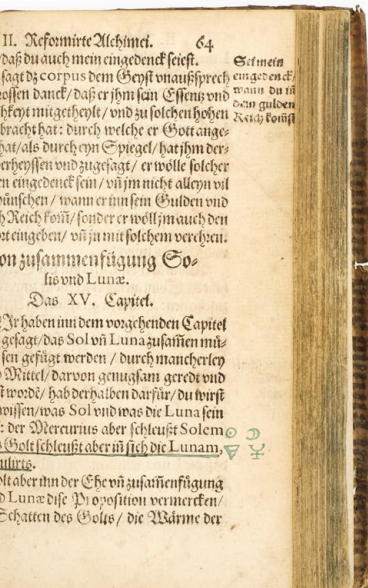 II. Reformirte Alchimei. 64
/daß du auch mein eingedenck seiest.
sagt dz corpus dem Geyst vnaußsprech
rossen danck/ daß er jhm sein Essentz vnd
hkeyt mitgetheylt/ vnd zu solchen hohen
bracht hat: durch welche er Gott ange-
hat/ als durch eyn Spiegel/ hat jhm der-
erheyssen vnd zugesagt/ er wölle solcher
en eingedenck sein/ vñ jm nicht alleyn vil
wünschen/ wann er inn sein Gulden vnd
Reich kom̃t/ sonder er wöll jm auch den
ort eingeben/ vñ jn mit solchem verehren.
Sei mein
eingedenck/
wann du iñ
dein gulden
Reich kom̃st
on zusammenfügung So-
lis vnd Lunæ.
Das XV. Capitel.
Ir haben inn dem vorgehenden Capitel
gesagt/ das Sol vñ Luna zusam̃en mü-
sen gefügt werden/ durch mancherley
Mittel/ darvon genugsam geredt vnd
st wordẽ/ hab derhalben darfür/ du wirst
wissen/ was Sol vnd was die Luna sein
: der Mercurius aber schleußt Solem
s Golt schleußt aber iñ sich die Lunam,
ulirts.
olt aber inn der Ehe vñ zusam̃enfügung
d Lunæ dise Proposition vermercken/
Schatten des Golts/ die Wärme der